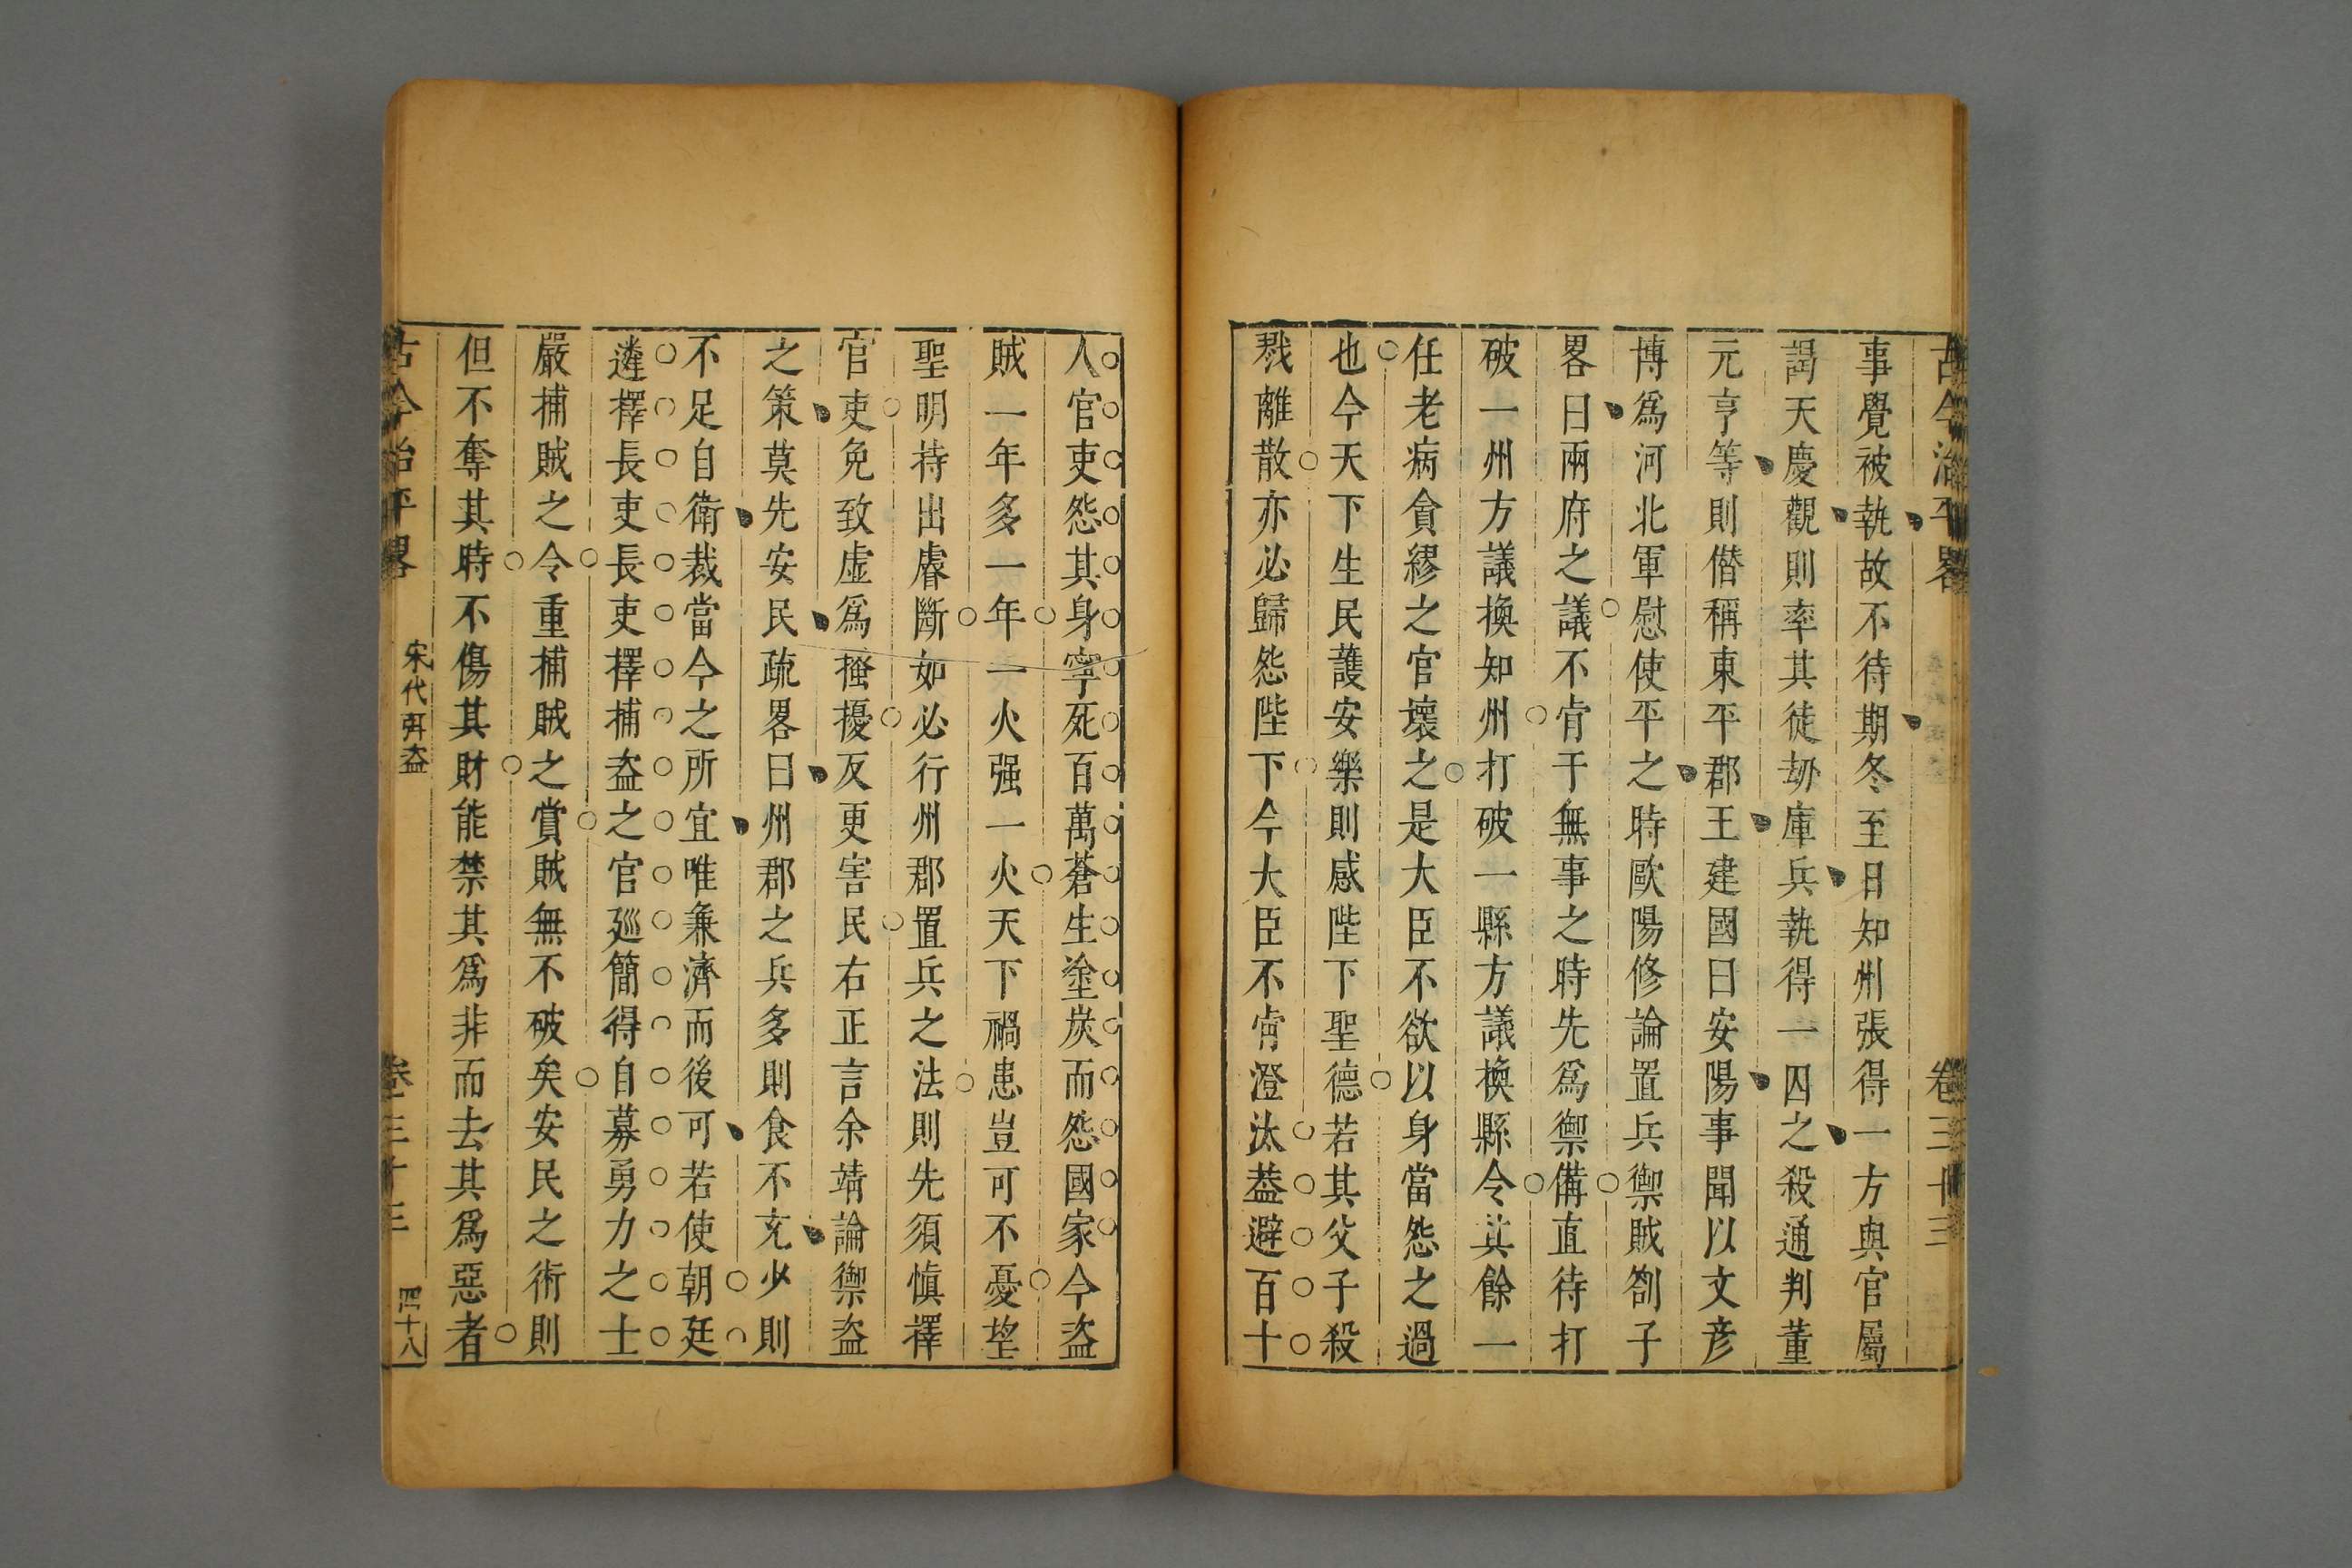 古今治平畧
卷三十三
事覺被執故不待期冬至日知州張得一方與官屬
謁天慶觀則率其徒刼庫兵執得一囚之殺通判董
元亨等則僭稱東平郡王建國曰安陽事聞以文彦
博爲河北軍慰使平之時歐陽修論置兵禦賊劄子
畧曰兩府之議不肯于無事之時先爲禦備直待打
破一州方議換知州打破一縣方議換縣令其餘一
任老病貪繆之官壞之是大臣不欲以身當怨之過
也今天下生民䕶安樂則感陛下聖德若其父子殺
戮離散亦必歸怨陛下今大臣不肯澄汰葢避百十
人官吏怨其身寧死百萬蒼生塗炭而怨國家今盜
賊一年多一年一火强一火天下禍患豈可不憂望
聖明特出睿斷如必行州郡置兵之法則先須慎擇
官吏免致虛爲搔擾反更害民右正言余靖論禦盜
之策莫先安民疏畧曰州郡之兵多則食不充少則
不足自衛裁當今之所宜唯兼濟而後可若使朝廷
遴擇長吏長吏擇捕盗之官廵簡得自募勇力之士
嚴捕賊之令重捕賊之賞賊無不破矣安民之術則
但不奪其時不傷其財能禁其爲非而去其爲惡者
古今治平畧
宋代弭盗
卷三十三
四十八